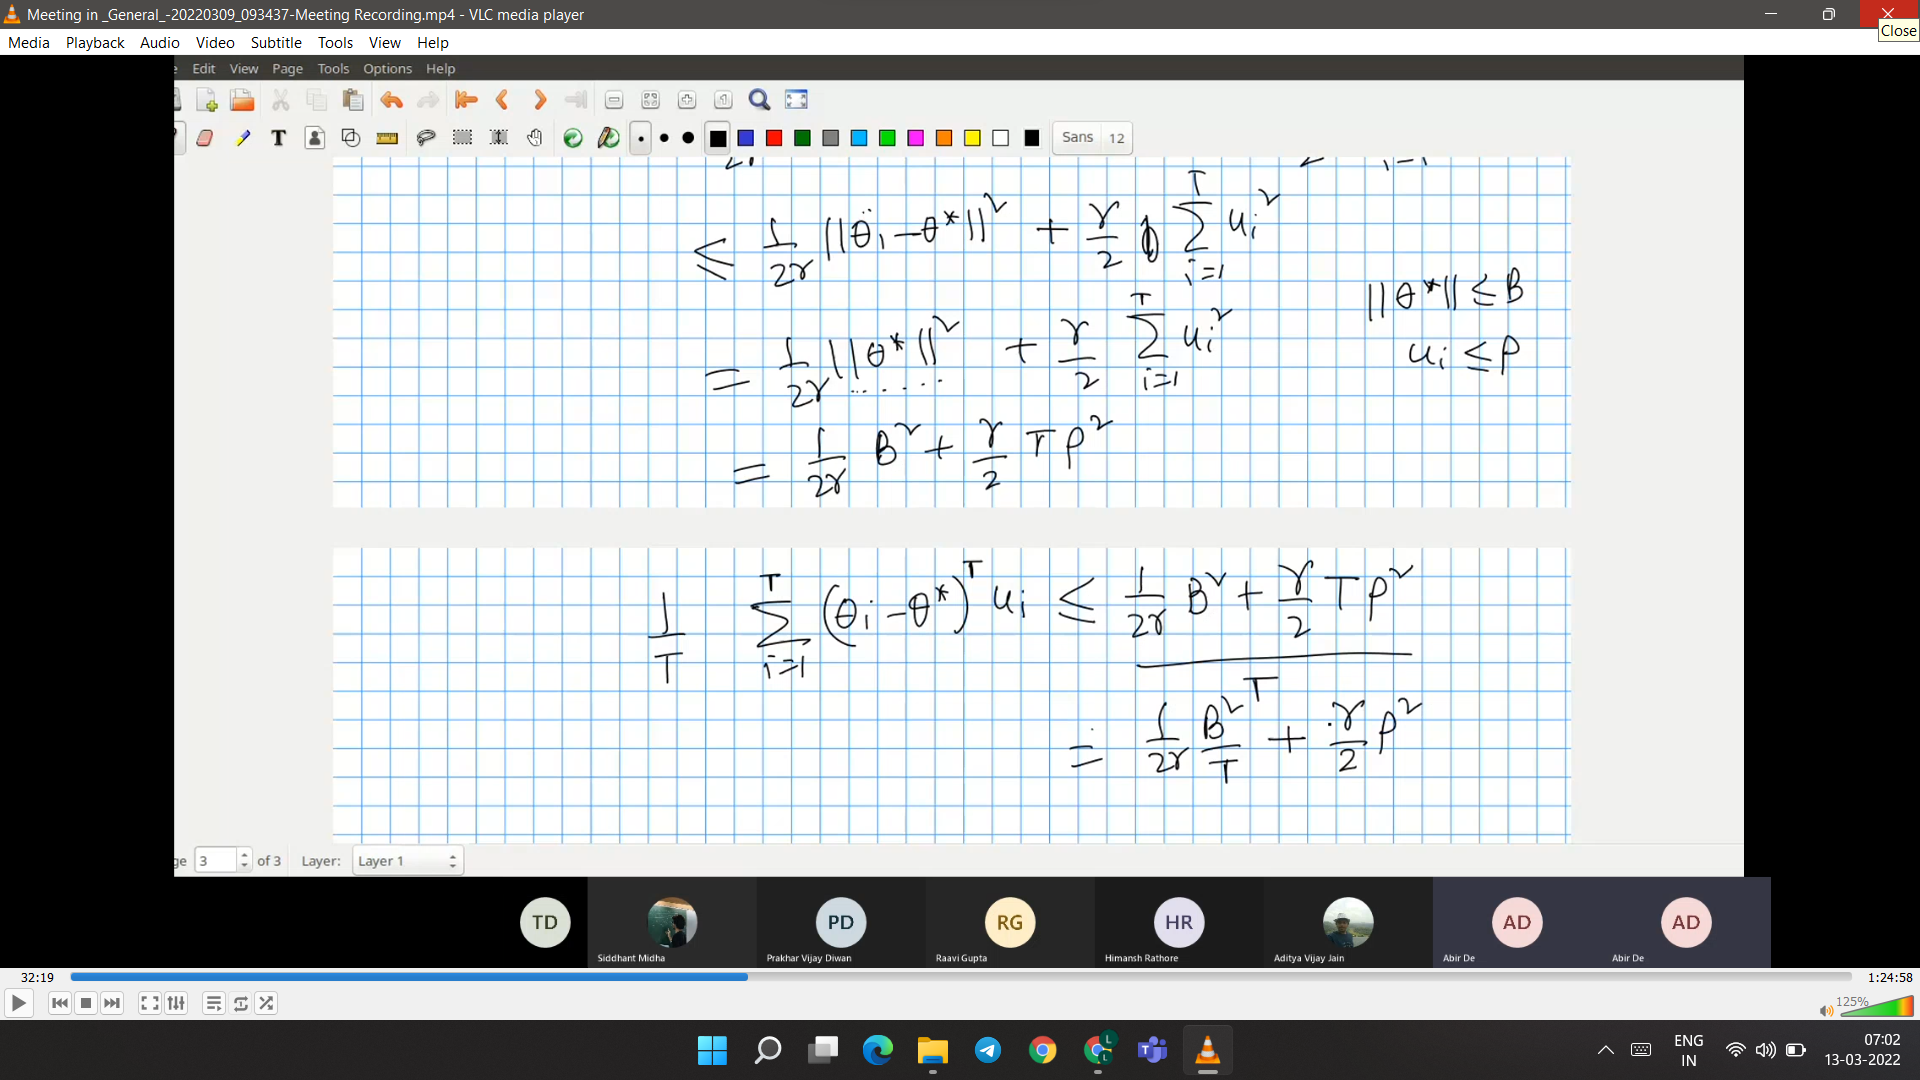 Meeting in _General_-20220309_093437-Meeting Recording.mp4 - VLC media player
Close
Media Playback Audio Video Subtitle Tools View Help
Edit View Page Tools Options Help
Sans 12
≤ 1/2γ ||θ₁ - θ*||² + γ/2 Σ_{i=1}^{T} uᵢ²
||θ*|| ≤ B
= 1/2γ ||θ*||² + γ/2 Σ_{i=1}^{T} uᵢ²
uᵢ ≤ ρ
= 1/2γ B² + γ/2 T ρ²
1/T Σ_{i=1}^{T} (θᵢ - θ*)ᵀ uᵢ ≤ (1/2γ B² + γ/2 T ρ²) / T
= 1/2γ B²/T + γ/2 ρ²
ge 3 of 3 Layer: Layer 1
TD PD RG HR AD AD
Siddhant Midha Prakhar Vijay Diwan Raavi Gupta Himansh Rathore Aditya Vijay Jain Abir De Abir De
32:19 1:24:58
125%
ENG 07:02
IN 13-03-2022